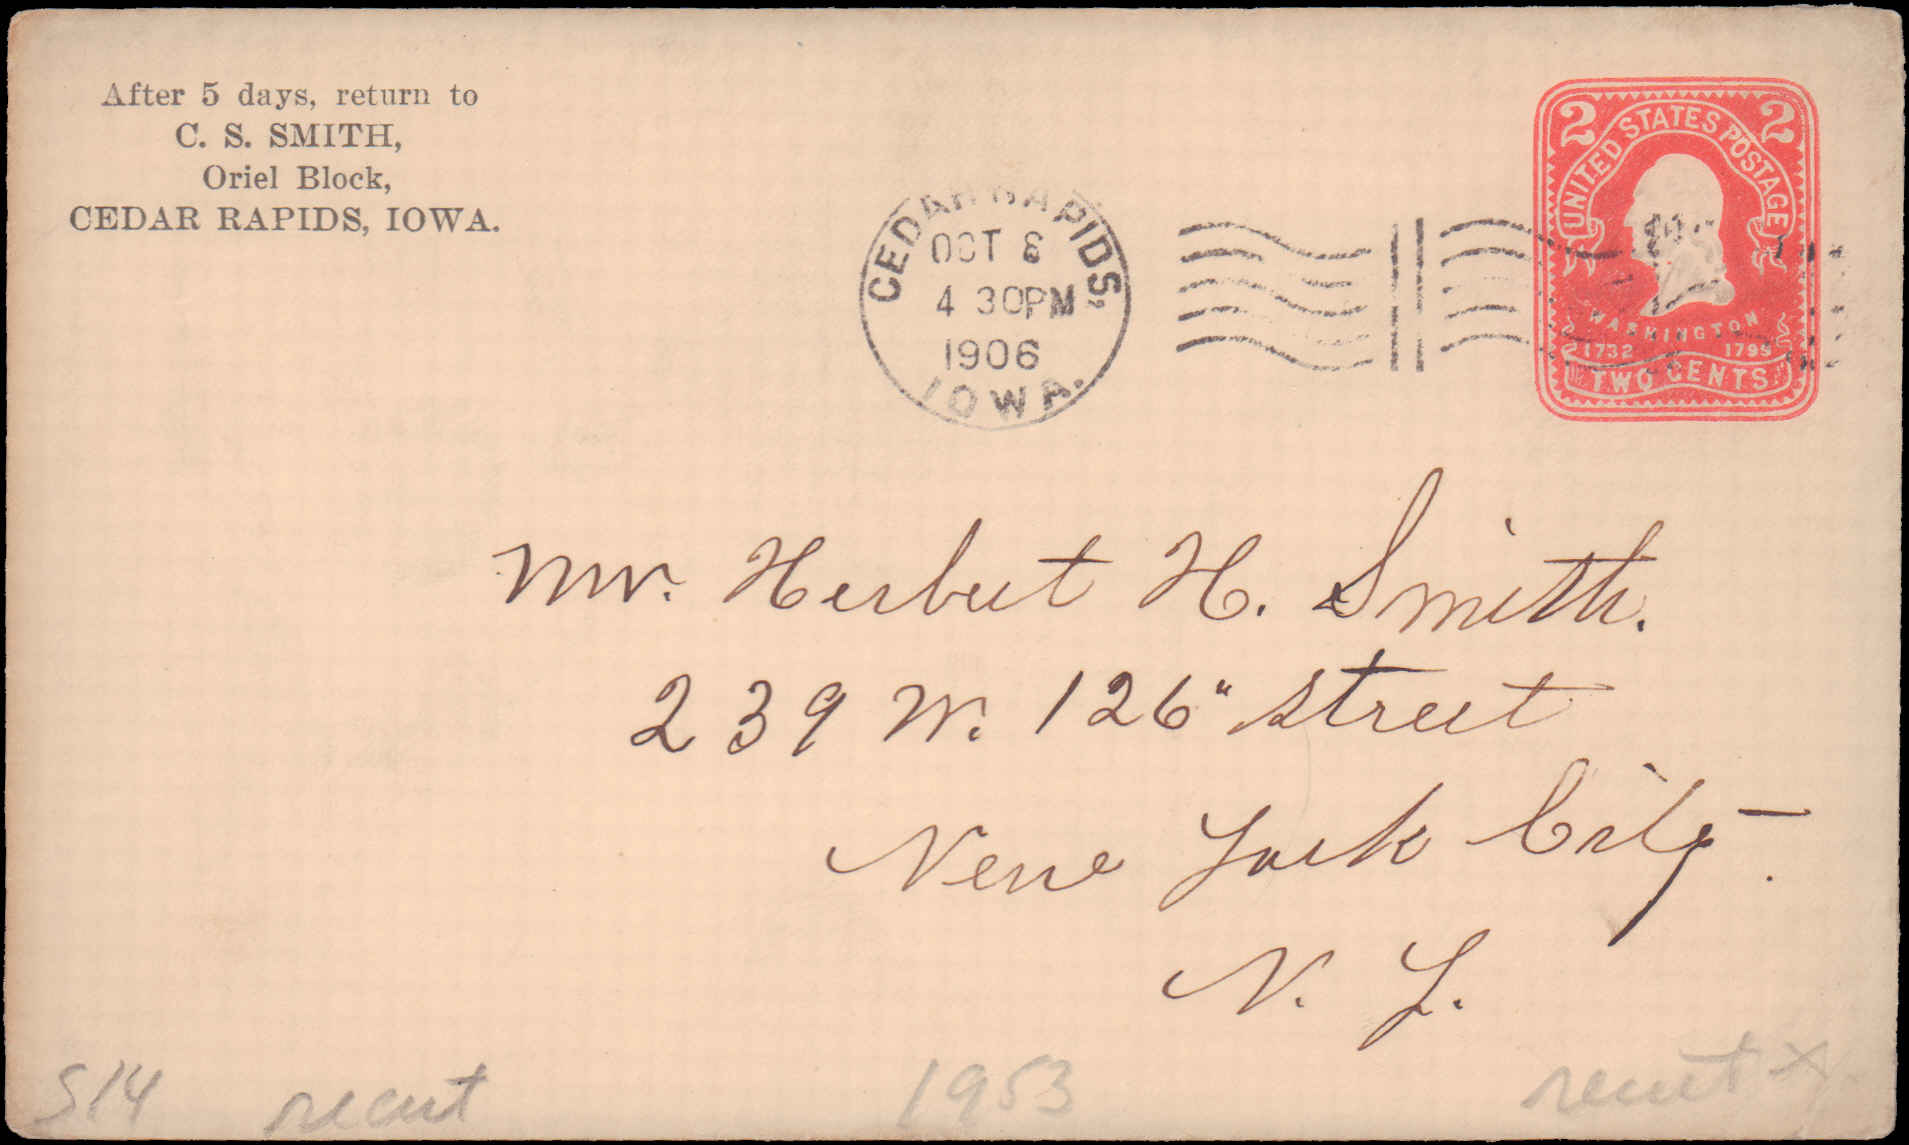 After 5 days, return to
C. S. SMITH,
Oriel Block,
CEDAR RAPIDS, IOWA.
CEDAR RAPIDS,
OCT 8
4 30PM
1906
IOWA.
2 2
UNITED STATES POSTAGE
WASHINGTON
1732 1799
TWO CENTS
Mr. Herbert H. Smith.
239 W. 126" Street
New York City.
N. Y.
S14 recut 1953 recut x